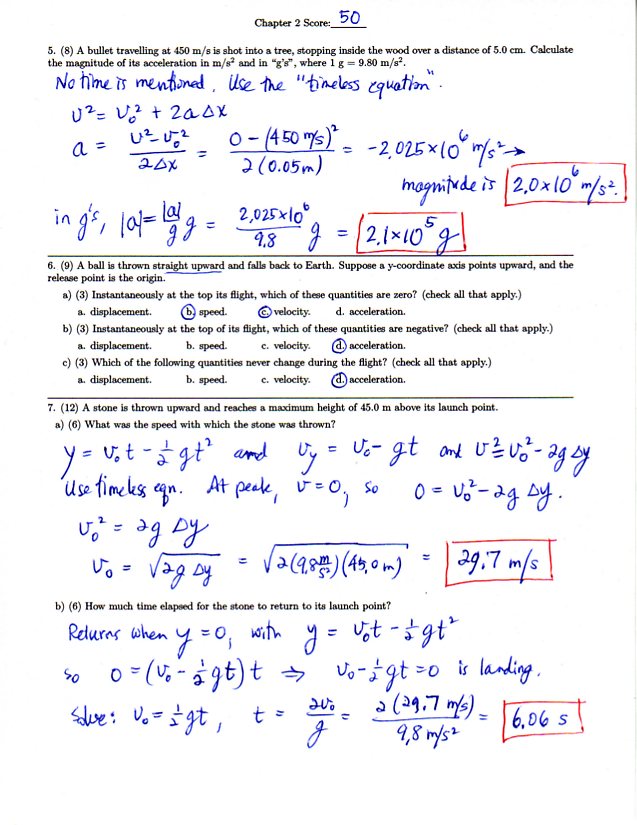 Chapter 2 Score: 50
5. (8) A bullet travelling at 450 m/s is shot into a tree, stopping inside the wood over a distance of 5.0 cm. Calculate
the magnitude of its acceleration in m/s² and in "g's", where 1 g = 9.80 m/s².
No time is mentioned. Use the "timeless equation".
v² = v₀² + 2aΔx
a = (v² - v₀²)/(2Δx) = (0 - (450 m/s)²)/(2(0.05m)) = -2.025×10⁶ m/s² →
magnitude is 2.0×10⁶ m/s².
in g's, |a| = |a|/g g = 2.025×10⁶/9.8 g = 2.1×10⁵ g
6. (9) A ball is thrown straight upward and falls back to Earth. Suppose a y-coordinate axis points upward, and the
release point is the origin.
a) (3) Instantaneously at the top its flight, which of these quantities are zero? (check all that apply.)
a. displacement. b. speed. c. velocity. d. acceleration.
b) (3) Instantaneously at the top of its flight, which of these quantities are negative? (check all that apply.)
a. displacement. b. speed. c. velocity. d. acceleration.
c) (3) Which of the following quantities never change during the flight? (check all that apply.)
a. displacement. b. speed. c. velocity. d. acceleration.
7. (12) A stone is thrown upward and reaches a maximum height of 45.0 m above its launch point.
a) (6) What was the speed with which the stone was thrown?
y = v₀t - ½gt² and v_y = v₀ - gt and v² = v₀² - 2gΔy
Use timeless eqn. At peak, v = 0, so 0 = v₀² - 2gΔy.
v₀² = 2gΔy
v₀ = √(2gΔy) = √(2(9.8 m/s²)(45.0 m)) = 29.7 m/s
b) (6) How much time elapsed for the stone to return to its launch point?
Returns when y = 0, with y = v₀t - ½gt²
so 0 = (v₀ - ½gt)t ⇒ v₀ - ½gt = 0 is landing.
Solve: v₀ = ½gt, t = 2v₀/g = 2(29.7 m/s)/9.8 m/s² = 6.06 s